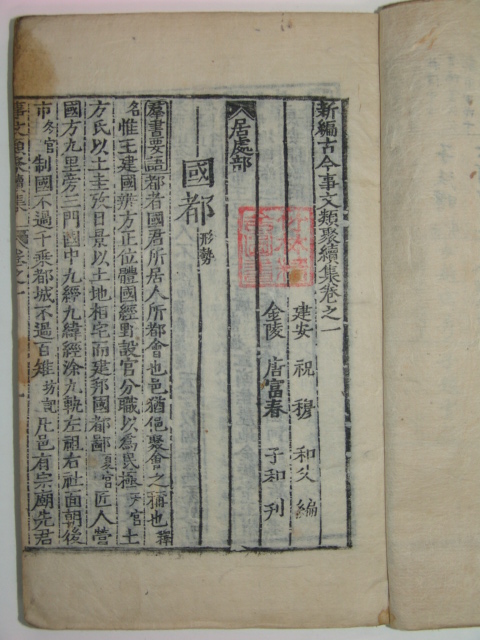 新編古今事文類聚續集卷之一
建安 祝穆 和父 編
金陵 唐富春 子和 刊
居處部
國都 形勢
羣書要語都者國君所居人所都會也邑猶俋聚會之稱也釋
名惟王建國辨方正位體國經野設官分職以爲民極 官土
方氏以土圭攷日景以土地相宅而建邦國都鄙夏官匠人營
國方九里旁三門國中九經九緯經涂九軌左祖右社面朝後
市冬官制國不過千乘都城不過百雉坊記凡邑有宗廟先君
事文類聚續集 卷之一